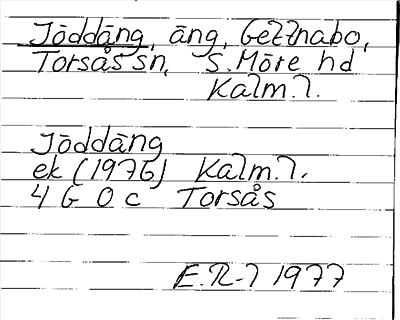 Jöddäng, äng, Gettnabo,
Torsås sn, S. Möre hd
Kalm. l.
Jöddäng
ek (1976) Kalm. l.
4 G 0 c Torsås
E.R-l 1977